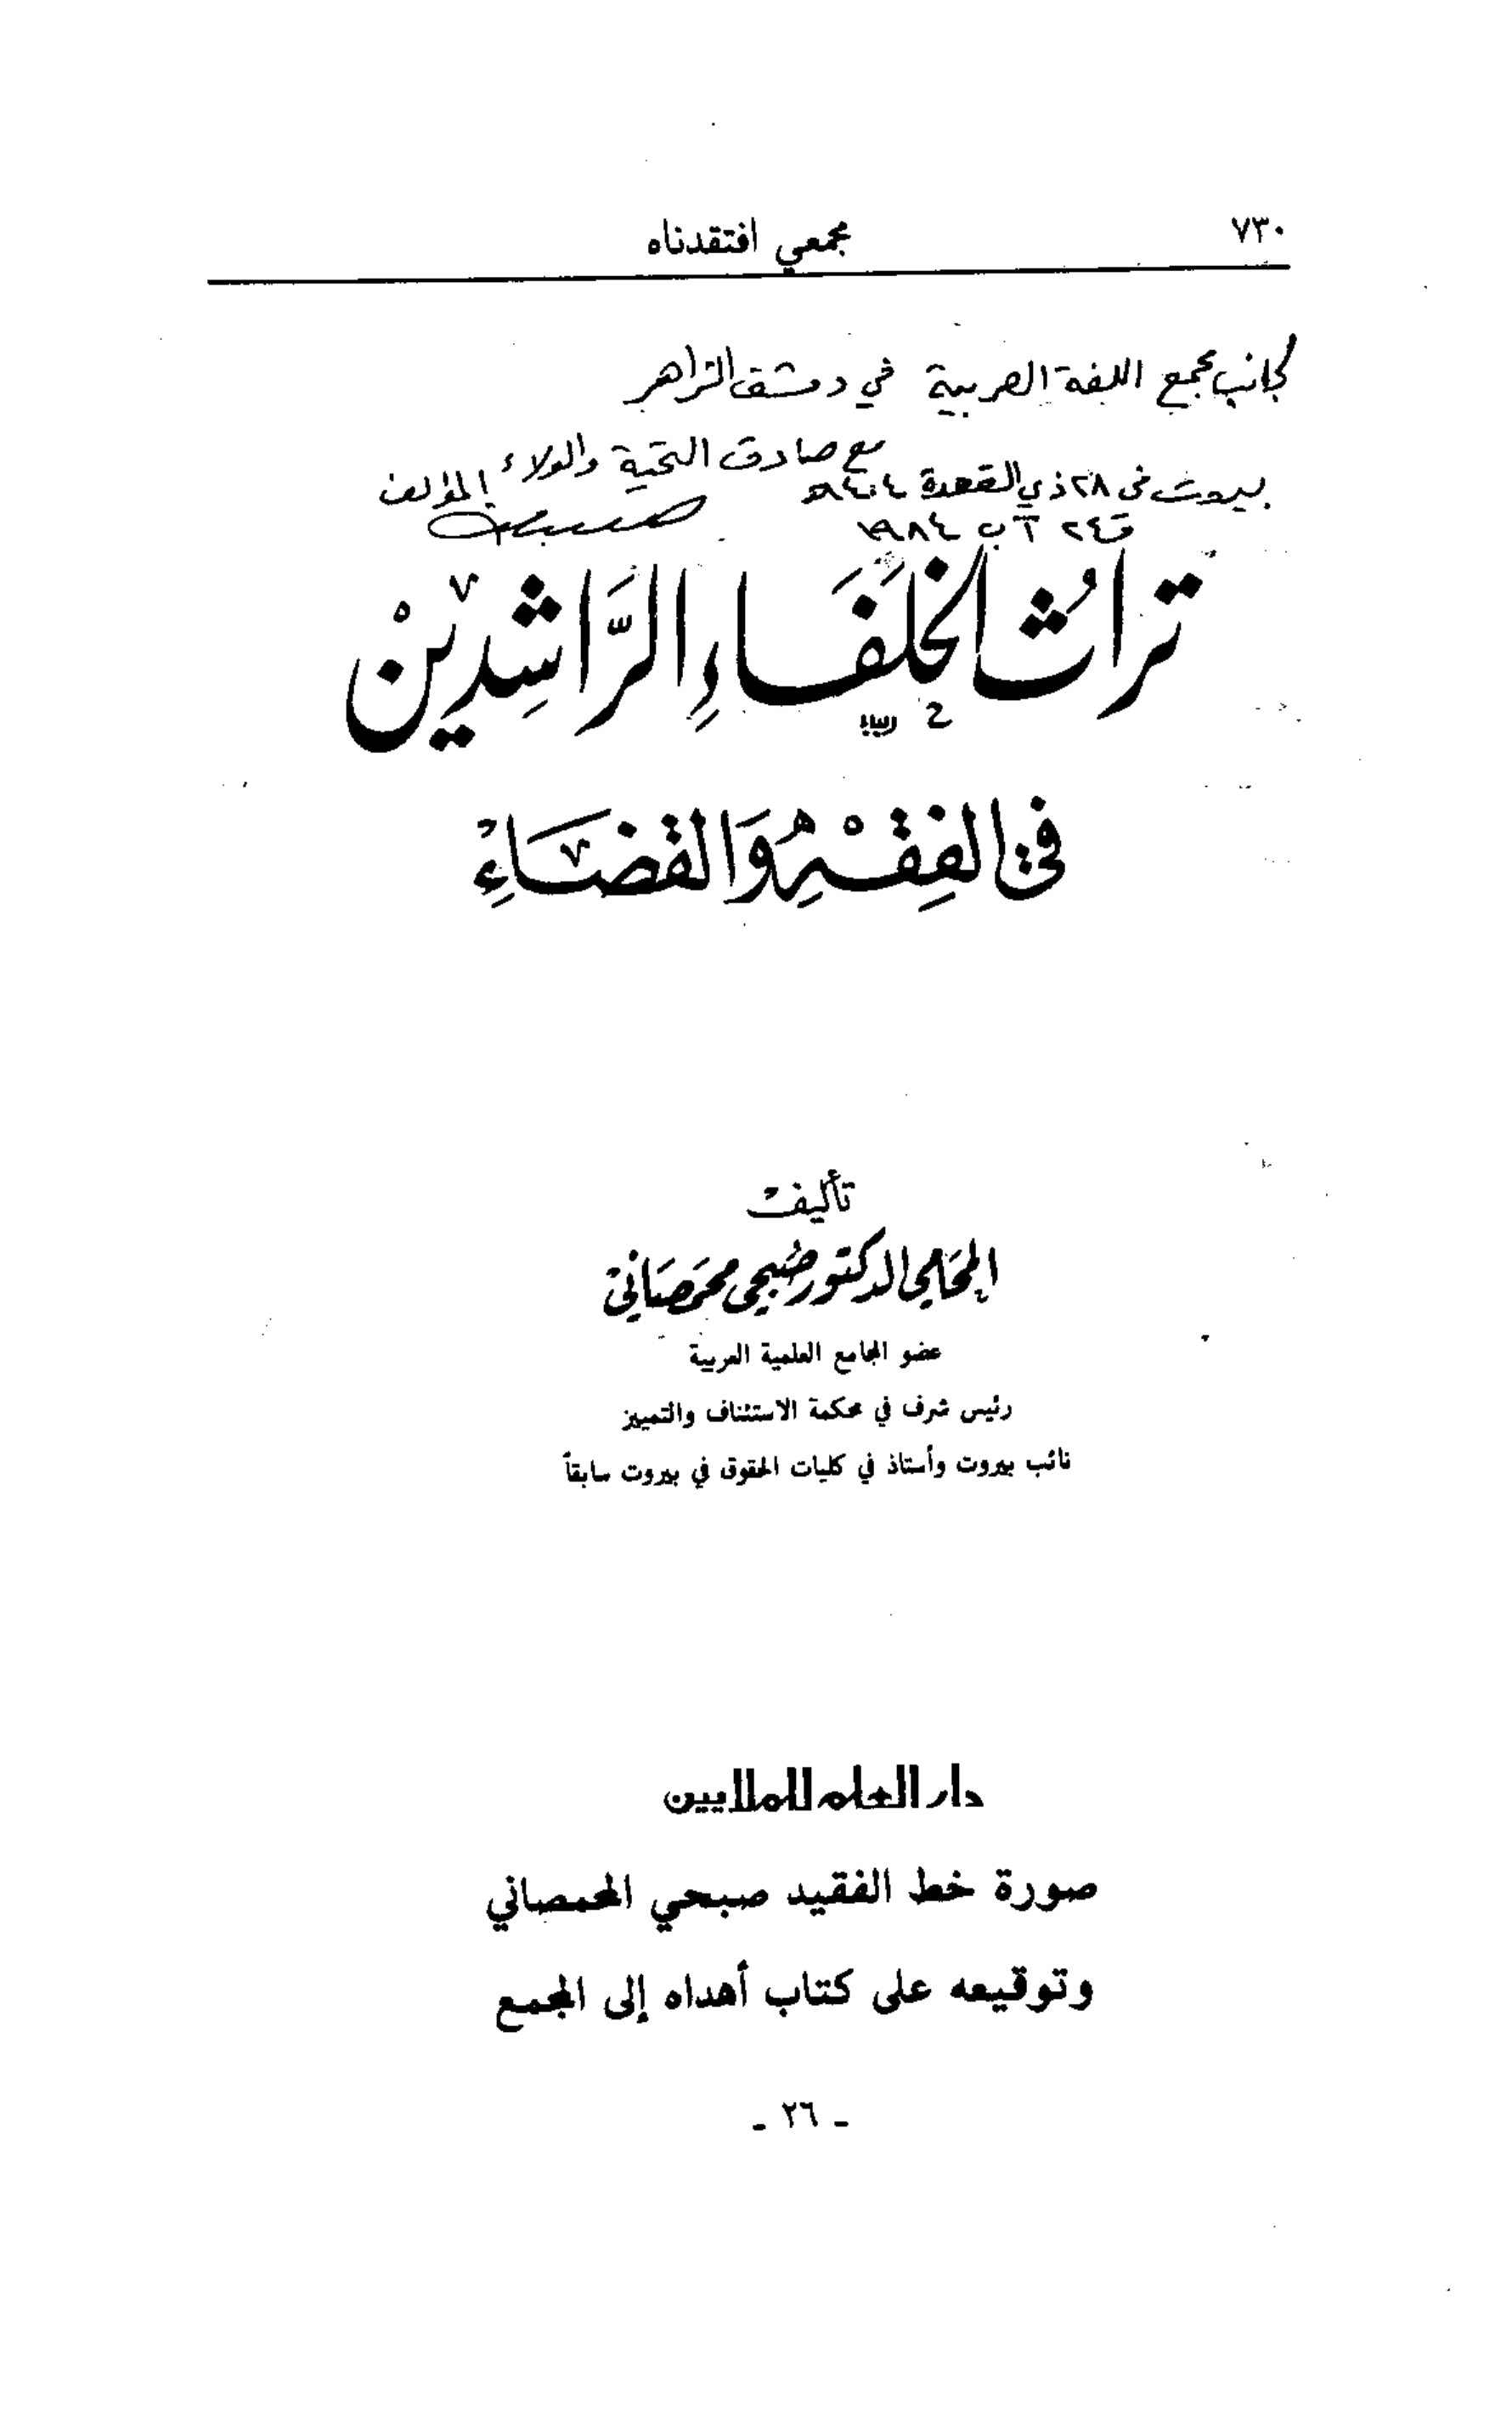 ٧٣٠
مجمعي افتقدناه
لجانب مجمع اللغة العربية في دمشق الزاهر
مع صادق التحية والولاء المؤلف
بيروت في ٢٨ ذي القعدة ١٤٠٤هـ
و٢٤ آب ١٩٨٤
تراثُ الخلَفَاءِ الرَّاشِدِيْنْ
في الفِقْهِ وَالقضَاءِ
تأليف
المحَامي الدكتور صُبحي محمَصَاني
عضو المجامع العلمية العربية
رئيس شرف في محكمة الاستئناف والتمييز
نائب بيروت وأستاذ في كليات الحقوق في بيروت سابقاً
دار العلم للملايين
صورة خط الفقيد صبحي المحمصاني
وتوقيعه على كتاب أهداه إلى المجمع
- ٢٦ -